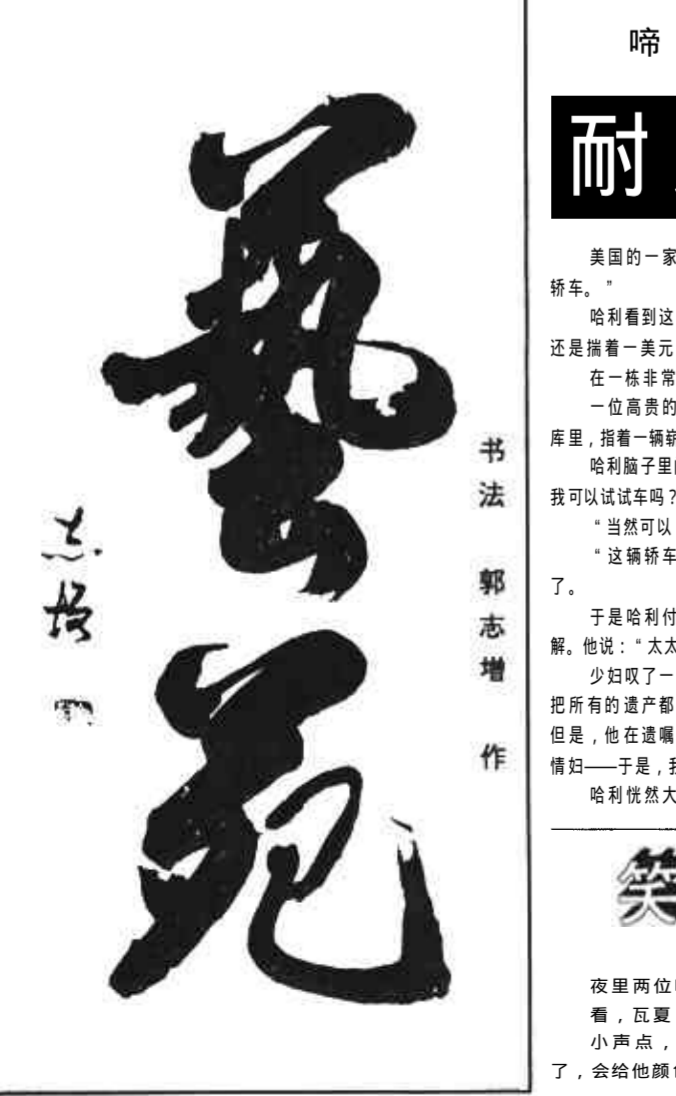 藝苑
书法 郭志增 作
志增
啼
耐
美国的一家
轿车。”
哈利看到这
还是揣着一美元
在一栋非常
一位高贵的
库里，指着一辆崭
哈利脑子里
我可以试试车吗？
“当然可以
“这辆轿车
了。
于是哈利付
解。他说：“太太
少妇叹了一
把所有的遗产都
但是，他在遗嘱
情妇——于是，我
哈利恍然大
笑
夜里两位
看，瓦夏
小声点，
了，会给他颜色